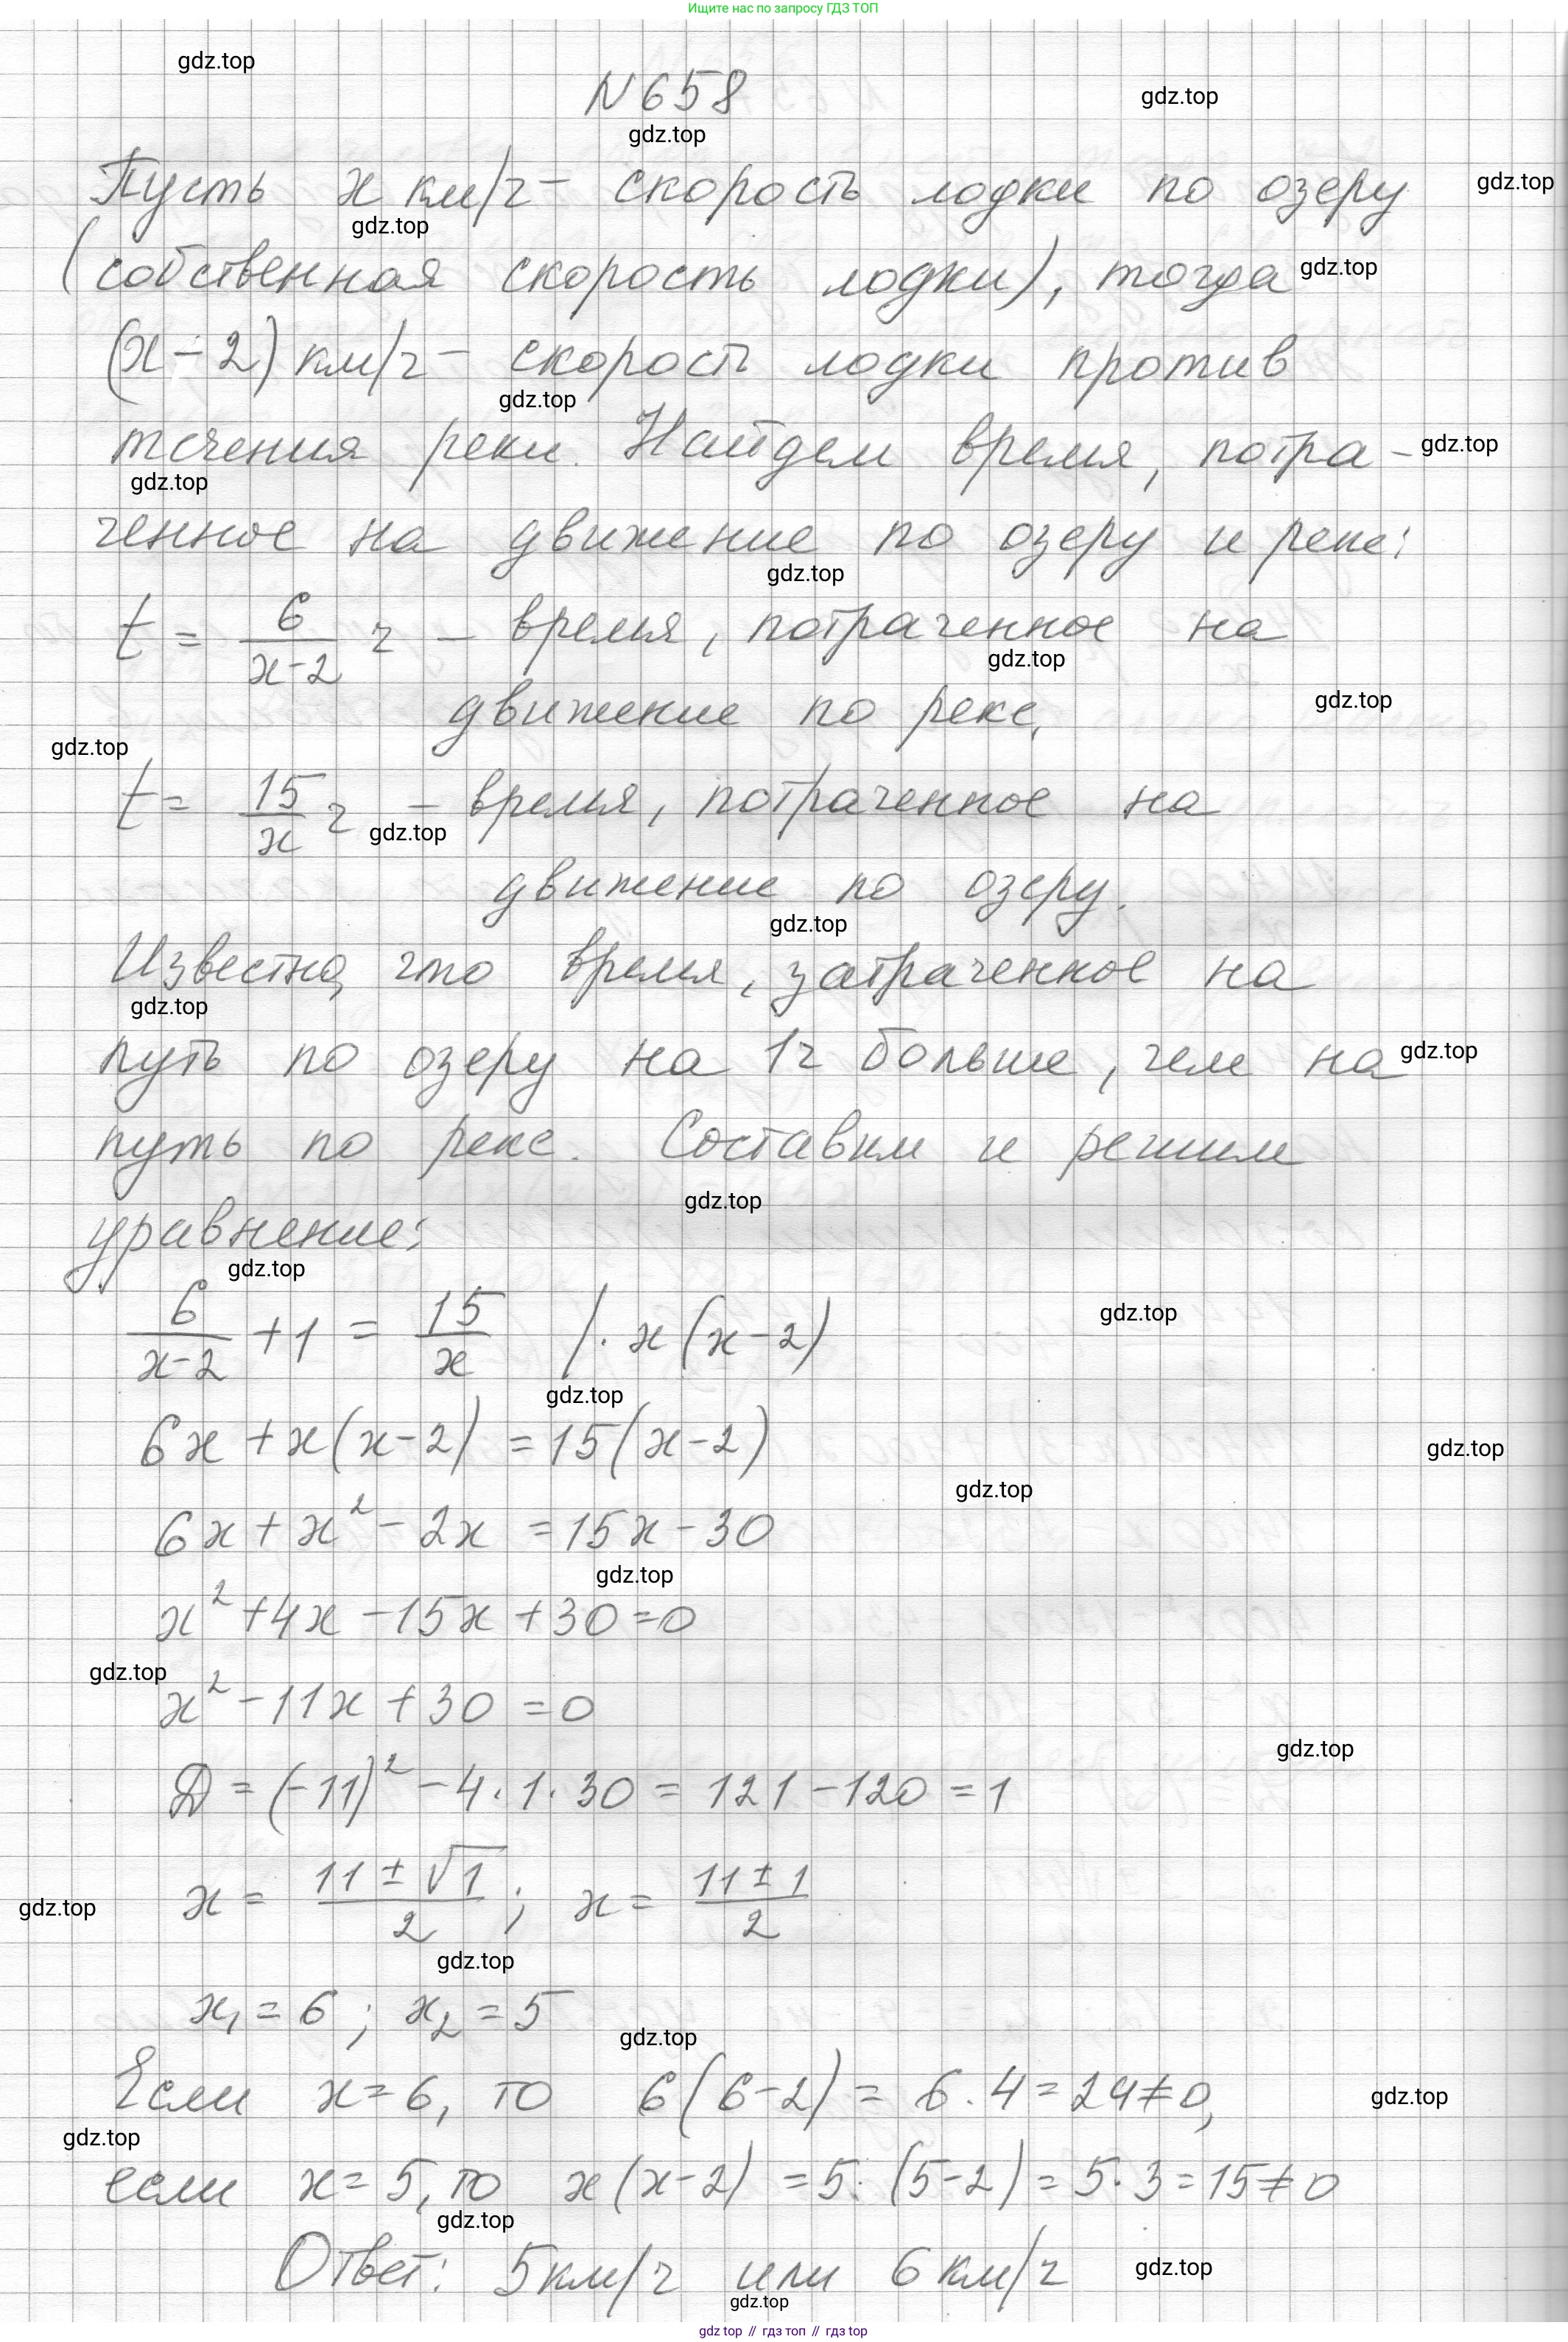 Ищите нас по запросу ГДЗ ТОП
gdz.top
N658
gdz.top
gdz.top
Пусть x км/ч - скорость лодки по озеру
gdz.top
gdz.top
(собственная скорость лодки), тогда
gdz.top
(x-2) км/ч - скорость лодки против
gdz.top
течения реки. Найдем время, потра-
gdz.top
gdz.top
ченное на движение по озеру и реке:
gdz.top
t = 6/(x-2) ч - время, потраченное на
gdz.top
движение по реке,
gdz.top
gdz.top
t = 15/x ч - время, потраченное на
gdz.top
движение по озеру.
gdz.top
Известно, что время, затраченное на
gdz.top
путь по озеру на 1ч больше, чем на
gdz.top
путь по реке. Составим и решим
gdz.top
уравнение:
gdz.top
6/(x-2) + 1 = 15/x /· x(x-2)
gdz.top
gdz.top
6x + x(x-2) = 15(x-2)
gdz.top
gdz.top
6x + x² - 2x = 15x - 30
gdz.top
x² + 4x - 15x + 30 = 0
gdz.top
x² - 11x + 30 = 0
gdz.top
D = (-11)² - 4·1·30 = 121 - 120 = 1
x = (11 ± √1)/2 ; x = (11 ± 1)/2
gdz.top
gdz.top
x₁ = 6 ; x₂ = 5
gdz.top
Если x = 6, то 6(6-2) = 6·4 = 24 ≠ 0,
gdz.top
gdz.top
если x = 5, то x(x-2) = 5·(5-2) = 5·3 = 15 ≠ 0
gdz.top
Ответ: 5 км/ч или 6 км/ч
gdz.top
gdz.top
gdz топ // гдз топ // гдз top